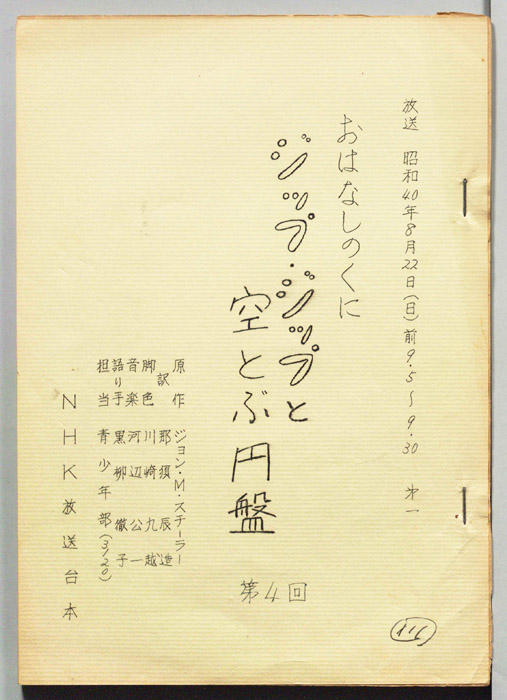 放送 昭和40年8月22日(日)前9.5〜9.30 オ一
おはなしのくに
ジップ・ジップと
空とぶ円盤
第4回
原作 ジョン・M・スチーラー
訳 那須辰造
脚色 川崎九越
音楽 河辺公一
語り手 黒柳徹子
担当 青少年部(3120)
NHK放送台本
116